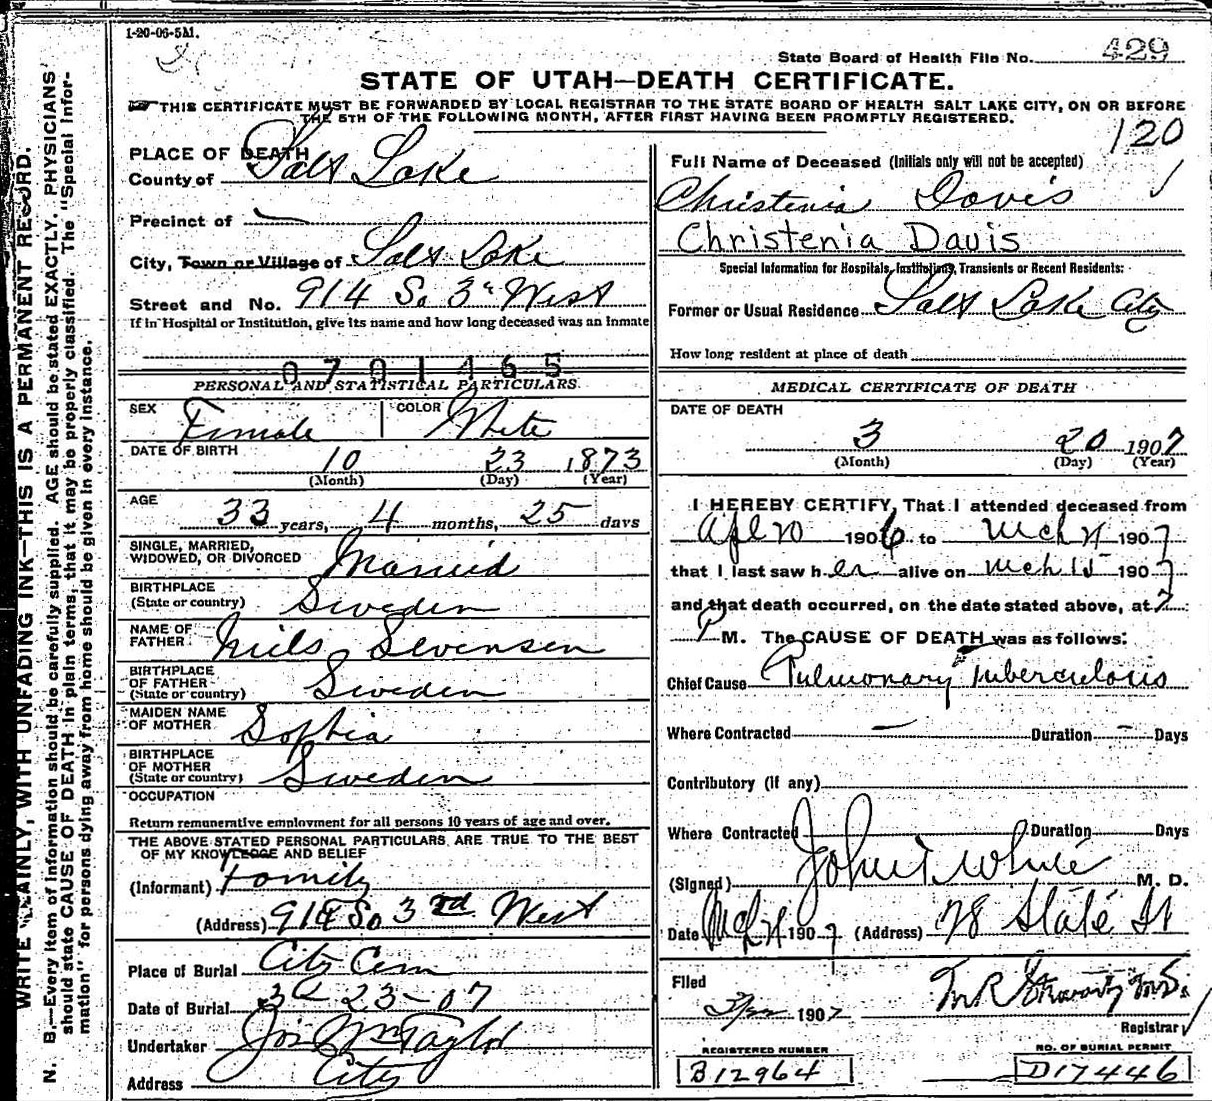 1-20-06-5M.
State Board of Health File No. 429
STATE OF UTAH—DEATH CERTIFICATE.
THIS CERTIFICATE MUST BE FORWARDED BY LOCAL REGISTRAR TO THE STATE BOARD OF HEALTH SALT LAKE CITY, ON OR BEFORE
THE 5TH OF THE FOLLOWING MONTH, AFTER FIRST HAVING BEEN PROMPTLY REGISTERED.
120
WRITE PLAINLY, WITH UNFADING INK—THIS IS A PERMANENT RECORD.
N. B.—Every item of information should be carefully supplied. AGE should be stated EXACTLY. PHYSICIANS
should state CAUSE OF DEATH in plain terms, that it may be properly classified. The "Special Infor-
mation" for persons dying away from home should be given in every instance.
PLACE OF DEATH
County of Salt Lake
Precinct of
City, Town or Village of Salt Lake
Street and No. 914 So 3rd West
If in Hospital or Institution, give its name and how long deceased was an Inmate
0701465
PERSONAL AND STATISTICAL PARTICULARS
SEX Female COLOR White
DATE OF BIRTH 10 23 1873
(Month) (Day) (Year)
AGE 33 years, 4 months, 25 days
SINGLE, MARRIED,
WIDOWED, OR DIVORCED Married
BIRTHPLACE
(State or country) Sweden
NAME OF
FATHER Niels Sevensen
BIRTHPLACE
OF FATHER
(State or country) Sweden
MAIDEN NAME
OF MOTHER Sophia
BIRTHPLACE
OF MOTHER
(State or country) Sweden
OCCUPATION
Return remunerative employment for all persons 10 years of age and over.
THE ABOVE STATED PERSONAL PARTICULARS ARE TRUE TO THE BEST
OF MY KNOWLEDGE AND BELIEF
(Informant) Family
(Address) 914 So 3rd West
Place of Burial City Cem
Date of Burial 3d 23-07
Undertaker Jos Wm Taylor
Address City
Full Name of Deceased (Initials only will not be accepted)
Christenia Davis
Christenia Davis
Special Information for Hospitals, Institutions, Transients or Recent Residents:
Former or Usual Residence Salt Lake City
How long resident at place of death
MEDICAL CERTIFICATE OF DEATH
DATE OF DEATH
3 20 1907
(Month) (Day) (Year)
I HEREBY CERTIFY, That I attended deceased from
Apl 20 1906 to Mch 21 1907
that I last saw her alive on Mch 15 1907
and that death occurred, on the date stated above, at 7
P M. The CAUSE OF DEATH was as follows:
Chief Cause Pulmonary Tuberculosis
Where Contracted — Duration — Days
Contributory (if any)
Where Contracted Duration Days
(Signed) John T. White M. D.
Date Mch 21 1907 (Address) 78 State St
Filed
3/22 1907
Registrar
REGISTERED NUMBER
B12964
NO. OF BURIAL PERMIT
D17446